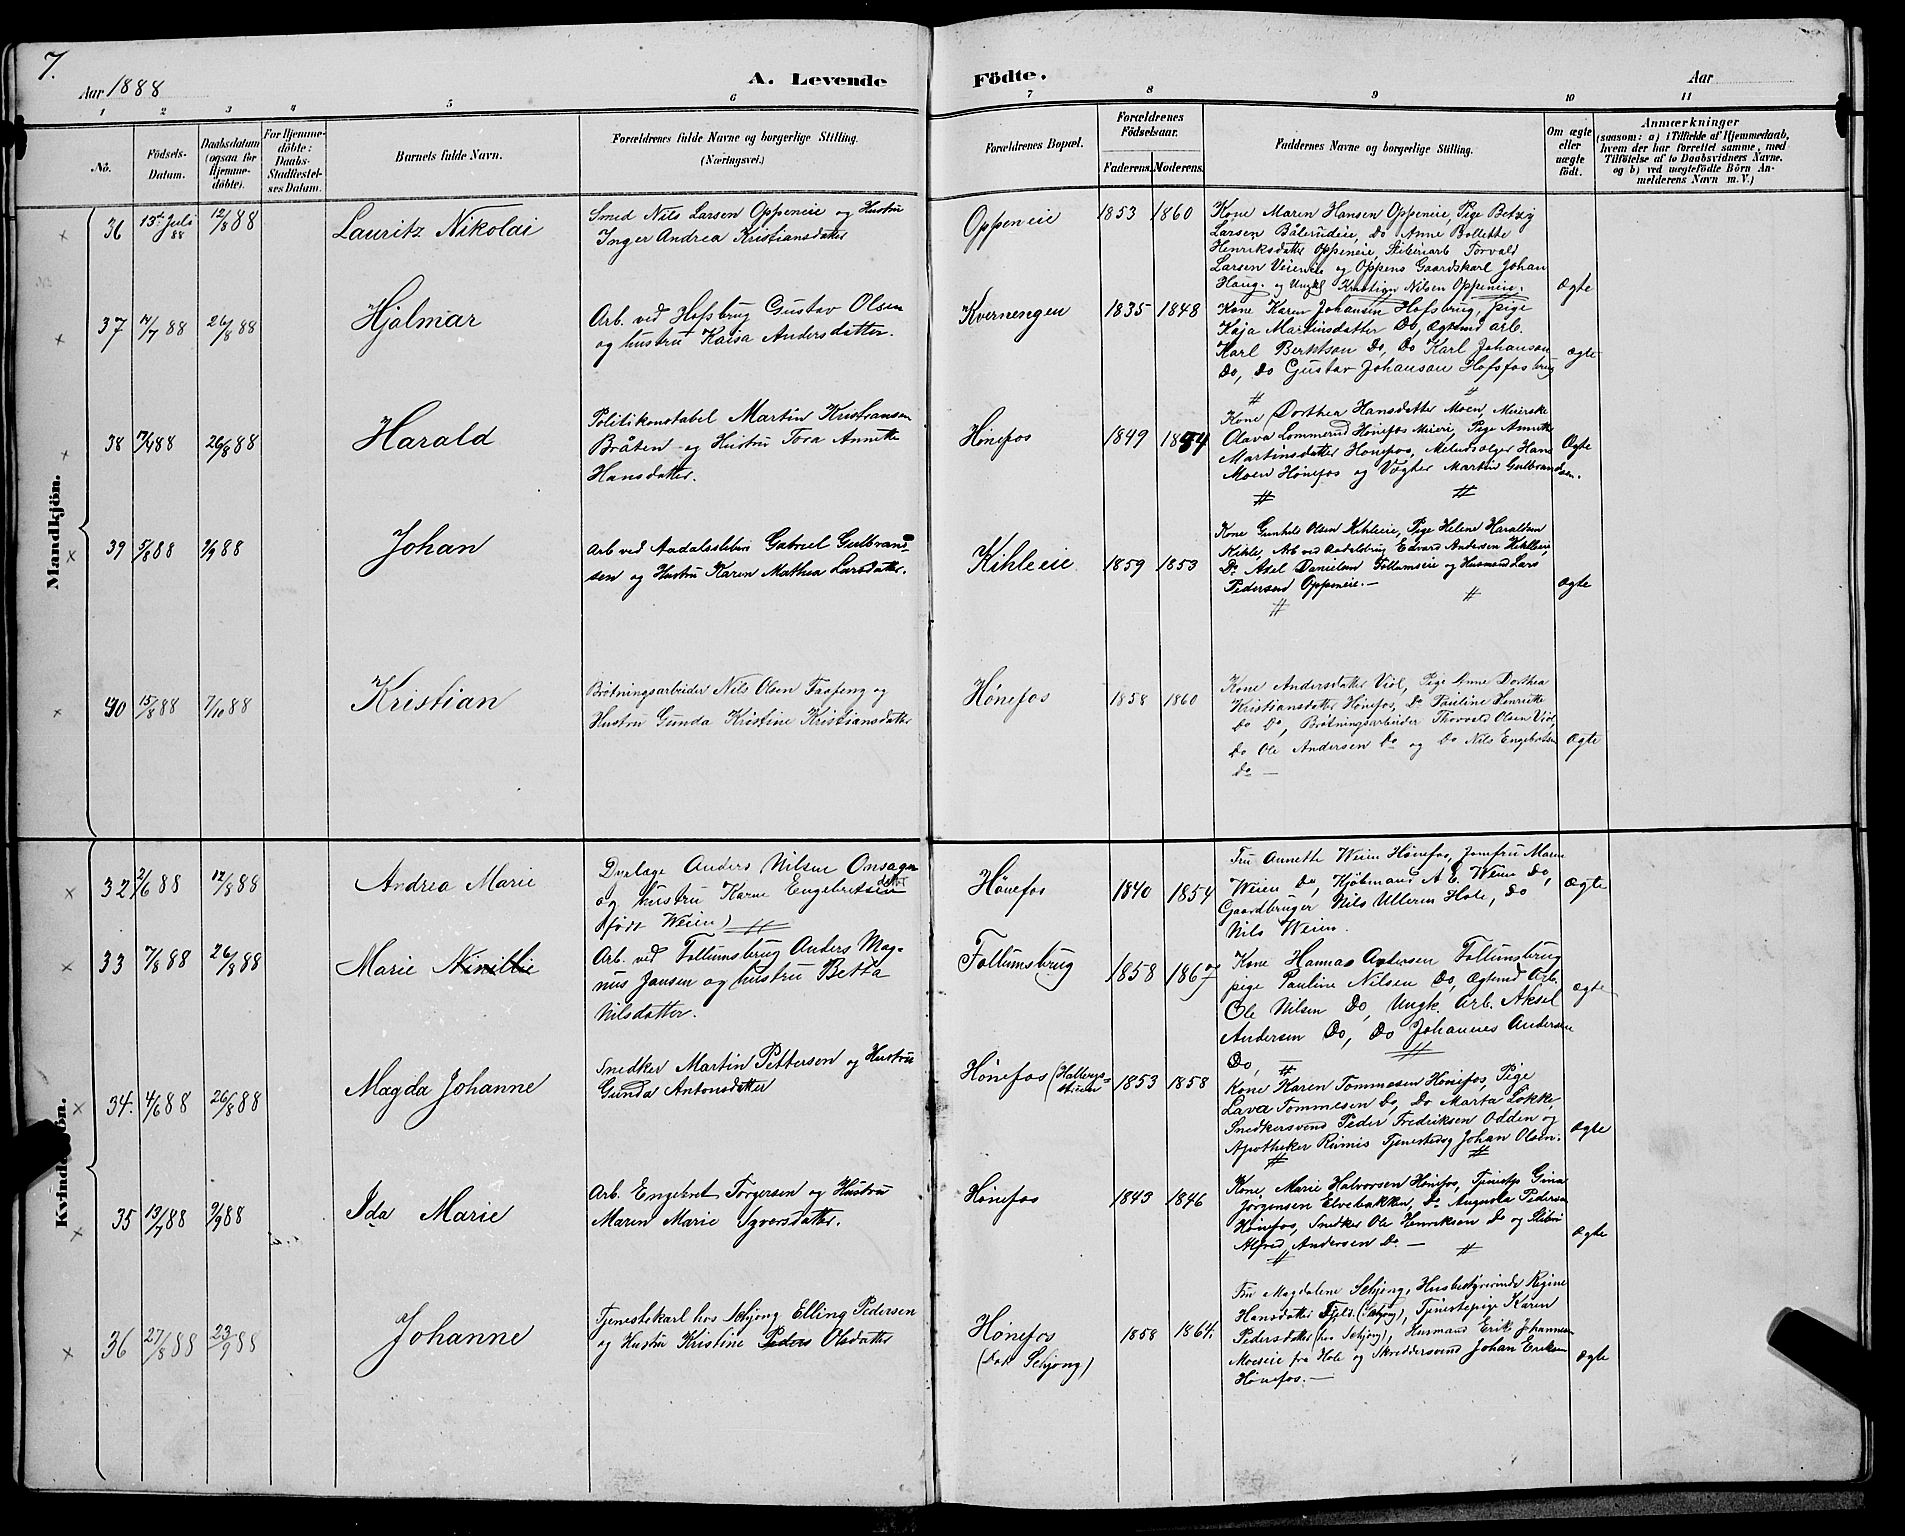 7.
Aar 1888
A. Levende
Födte.
Aar
1
2
3
4
5
6
7
8
9
10
11
No.
Födsels-
Datum.
Daabsdatum
(ogsaa for
Hjemme-
döbte).
For Hjemme-
döbte:
Daabs-
Stadfæstel-
ses Datum.
Barnets fulde Navn.
Forældrenes fulde Navne og borgerlige Stilling.
(Næringsvei.)
Forældrenes Bopæl.
Forældrenes
Födselsaar.
Faderens.
Moderens.
Faddernes Navne og borgerlige Stilling.
Om ægte
eller
uægte
födt.
Anmærkninger
(saasom: a) i Tilfælde af Hjemmedaab,
hvem der har forrettet samme, med
Tilföielse af to Daabsvidners Navne,
og b) ved uægtefödte Börn An-
melderens Navn m. V.)
Mandkjön.
36
13de Juli
88
12/8 88
Lauritz Nikolai
Smed Nils Larsen Oppeneie og Hustru
Inger Andrea Kristiansdatter
Oppeneie
1853
1860
Kone Maren Hansen Oppeneie, Pige Betzy
Larsen Bålerudeie, Do Anne Bollette
Henriksdatter Oppeneie, Sliberiarb Torvald
Larsen Veieneie og Oppens Gaardskarl Johan
Haug og Ungkl Kristian Nilsen Oppeneie.
Ægte
37
88
26/8 88
Hjalmar
Arb. ved Hofsbrug Gustav Olsen
og hustru Kaisa Andersdatter.
Kvernengen
1835
1848
Kone Karen Johansen Hofsbrug, pige
Kaja Martinsdatter Do, Ægtemd arb.
Karl Berntson Do, Do Karl Johanson
Do, Do Gustav Johanson Hofsfos brug
Ægte
38
7/4 88
26/8 88
Harald
Politikonstabel Martin Kristiansen
Bråten og Hustru Tora Annette
Hansdatter.
Hønefos
1849
1854
Kone Dorthea Hansdatter Moen, Meierske
Olava Lommerud Hønefos Meieri, Pige Annette
Martinsdatter Hønefos, Meludsalger Hans
Moen Hønefos og Vægter Martin Gulbrandsen.
Ægte
39
5/8 88
2/9 88
Johan
Arb ved Aadalssliberi Gabriel Gulbrand-
sen og Hustru Karen Mathea Larsdatter.
Kihleeie.
1859
1853
Kone Gunhild Olsen Kihleeie, Pige Helene Haraldsen
Kihle, Arb ved Aadalsbrug Edvard Andersen Kihleeie
Do Axel Danielsen Follumseie og Husmand Lars
Pedersen Oppeneie.
Ægte
40
15/8 88
7/10 88
Kristian
Brötningsarbeider Nils Olsen Faafeng og
Hustru Gunda Kristine Kristiansdatter
Hønefos
1858
1860
Kone Andersdatter Viöl, Pige Anne Dorthea
Kristiansdatter Hönefos, Do Pauline Henriette
Do Do, Brötningsarbeider Thorvald Olsen Viöl,
Do Ole Andersen Do og Do Nils Engebretsen
Do
Ægte
Kvindekjön.
32
2/6 88
12/8 88
Andrea Marie
Dyrlæge Anders Nilsen Onsager
og hustru Karen Engebretsen
(født Weien)
Hønefos
1840
1854
Fru Annette Weien Hønefos, Jomfru Maren
Weien Do, Kjøbmand A. E. Weien Do,
Gaardbruger Nils Ullern Hole, Do
Nils Weien.
Ægte
33
7/8 88
26/8 88
Marie
Arb. ved Follumsbrug Anders Mag-
nus Jansen og hustru Betta
Nilsdatter.
Follumsbrug
1858
1867
Kone Hanna Andersen Follumsbrug og
pige Pauline Nilsen Do, Ægtemd Arb.
Ole Nilsen Do, Ungk. Arb. Aksel
Andersen Do, Do Johannes Andersen
Do,
Ægte
34.
4/6 88
26/8 88
Magda Johanne
Snedker Martin Pettersen og Hustru
Gunda Antonsdatter
Hønefos (Hallings-
1853
1858
Kone Karen Tommesen Hønefos, Pige
Lava Tommesen Do, Do Marta Løkke,
Snedkersvend Peder Fredriksen Odden og
Apotheker Riimis Tjenestedrg Johan Olsen.
Ægte
35
13/7 88
2/9 88
Ida Marie
Arb. Engebret Torgersen og Hustru
Maren Marie Syversdatter.
Hønefos
1843
1846
Kone Marie Halvorsen Hønefos, Tjenstp Gina
Jörgensen Elvebakken, Do Augusta Pedersen
Hønefos, Snedker Ole Henriksen Do og Sliberi
Alfred Andersen Do.
Ægte
36
27/8 88
23/9 88
Johanne
Tjenestekarl hos Schjong Elling Pedersen
og Hustru Kristine Peders Olsdatter
Hønefos
(Dok Schjong)
1858
1864.
Fru Magdalene Schjong, Husbestyrerinde Regine
Hansdatter Fjeld (Schjong), Tjenestepige Karen
Pedersdatter (hos Schjong), Husmand Erik Johannesen
Moeseie fra Hole og Skreddersvend Johan Eriksen
Hønefos.
Ægte